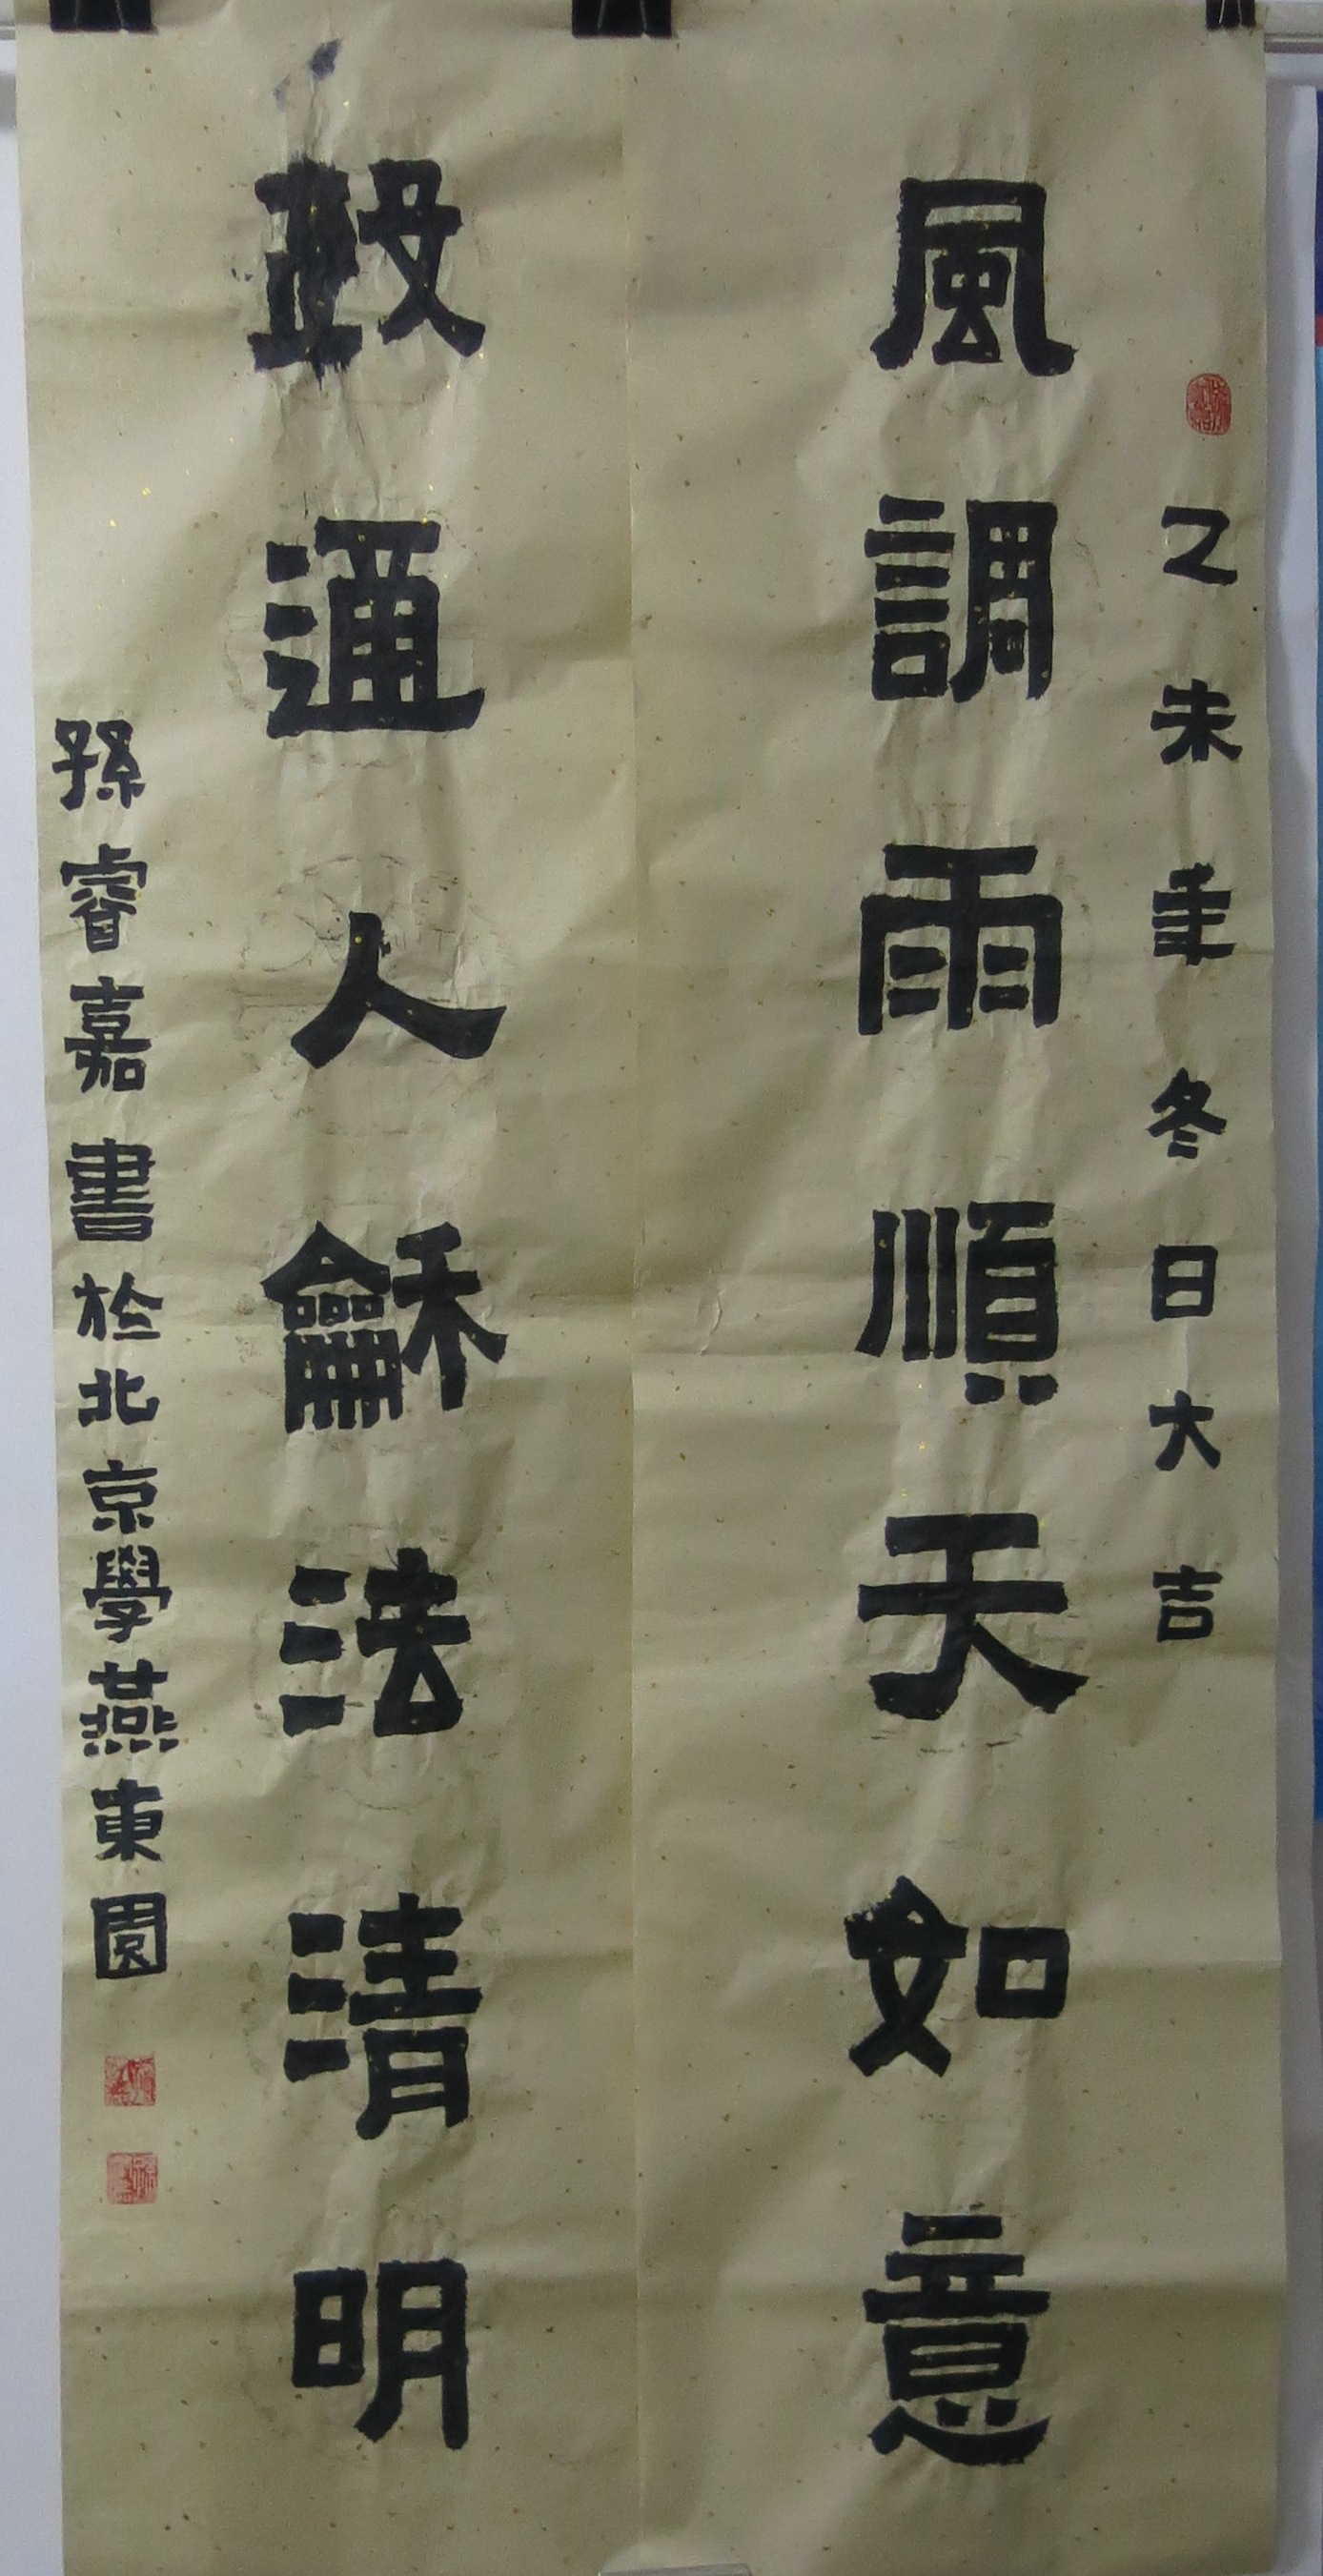 乙未年冬日大吉
風調雨順天如意
政通人龢法清明
孫睿嘉書於北京學燕東園